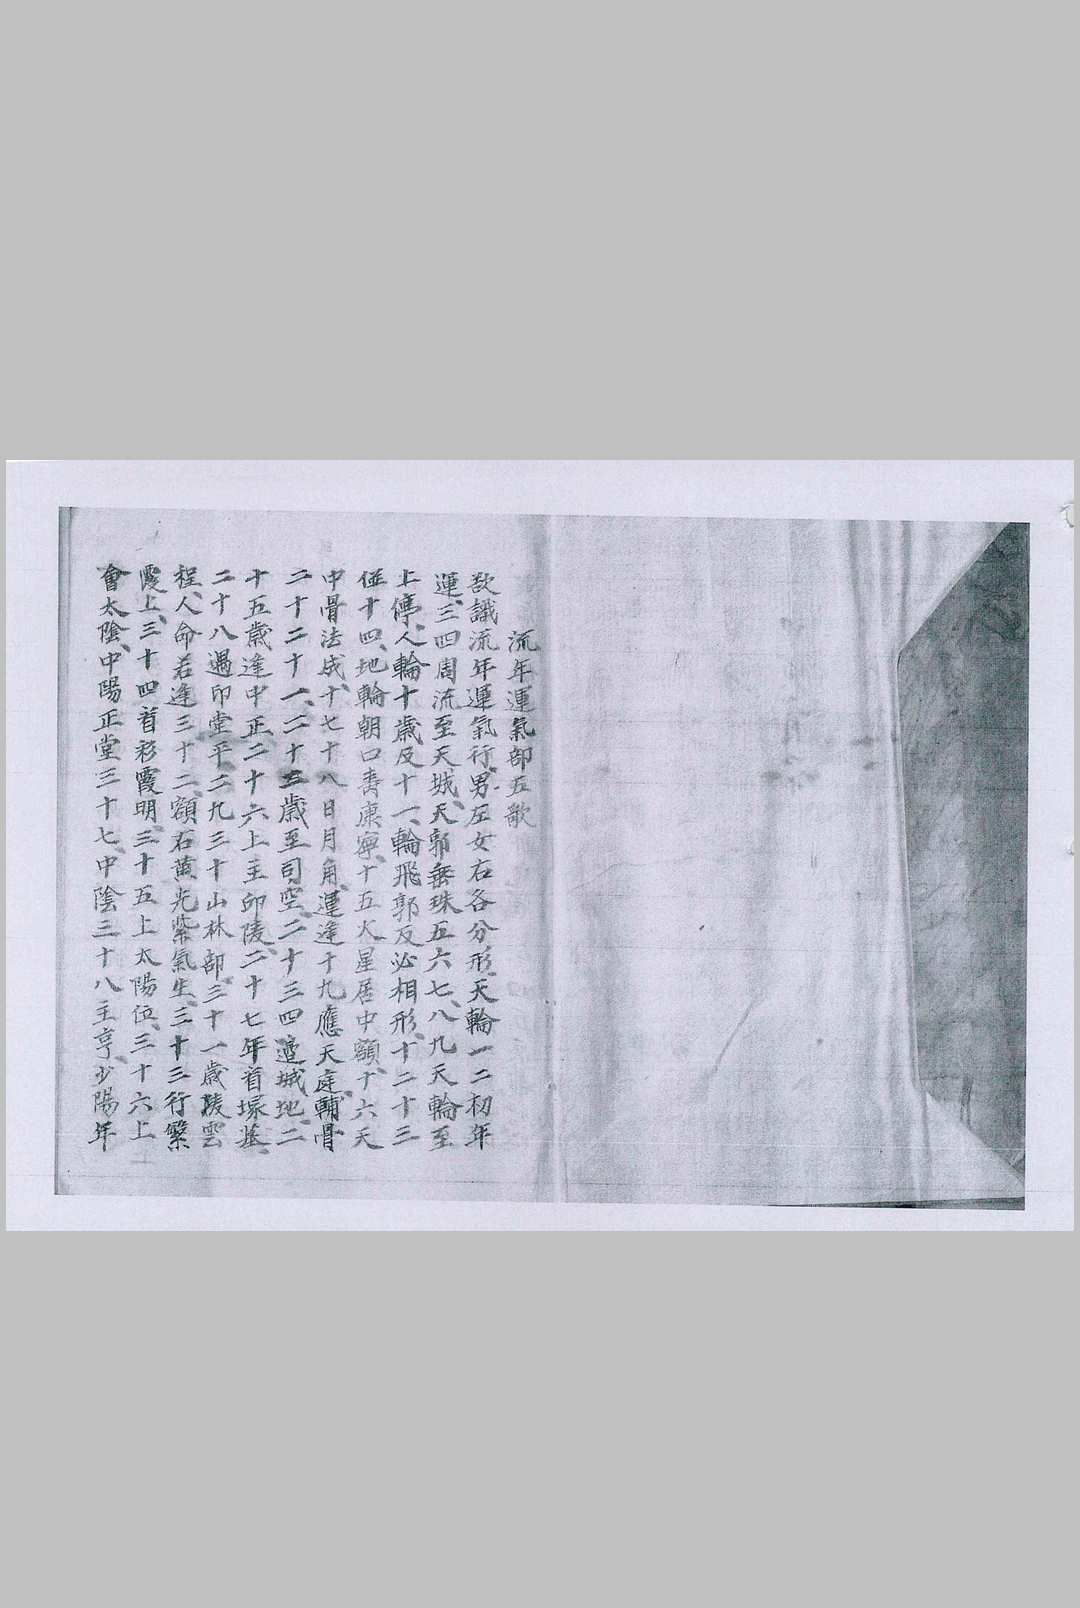 流年運氣部五歌
欲識流年運氣行、男左女右各分形、天輪一二初年
運、三四周流至天城、天郭垂珠五六七、八九天輪至
上停、人輪十歲及十一、輪飛郭反必相形、十二十三
並十四、地輪朝口壽康寧、十五火星居中額、十六天
中骨法成、十七十八日月角、運逢十九應天庭、輔骨
二十二十一、二十二歲至司空、二十三四邊城地、二
十五歲逢中正、二十六上主印陵、二十七年看塚墓、
二十八遇印堂平、二九三十山林部、三十一歲陵雲
程、人命若逢三十二、額右黃光紫氣生、三十三行繁
霞上、三十四看彩霞明、三十五上太陽位、三十六上
會太陰、中陽正堂三十七、中陰三十八主亨、少陽年